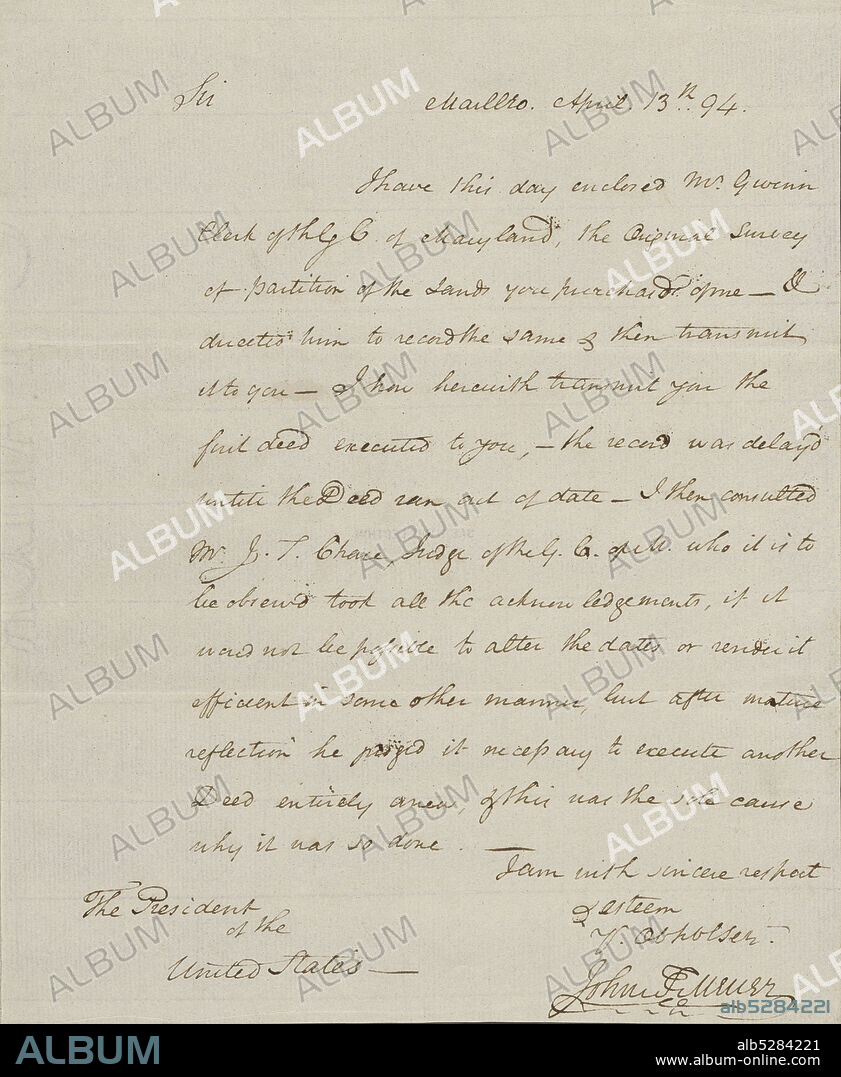 Sir
Marlbro. April. 13th. 94.
I have this day enclosed Mr. Gwinn
Clerk of th G C. of Maryland, the Original Survey
of partition of the Lands you purchasd. of me — &
directed him to record the same & then transmit
it to you — I now herewith transmit you the
first deed executed to you, — the record was delay'd
untill the Deed ran out of date — I then consulted
Mr. J. T. Chase, Judge of the G. C. of M. who it is to
be observ'd took all the acknowledgements, if it
woud not be possible to alter the dates or render it
efficient in some other manner, but after mature
reflection he judged it necessary to execute another
Deed entirely anew, & this was the sole cause
why it was so done. —
I am with sincere respect
& esteem
Y. Ob hbl Ser.
The President
of the
United States —
John F. Mercer
ALBUM
alb5284221
ALBUM
alb5284221
www.album-online.com